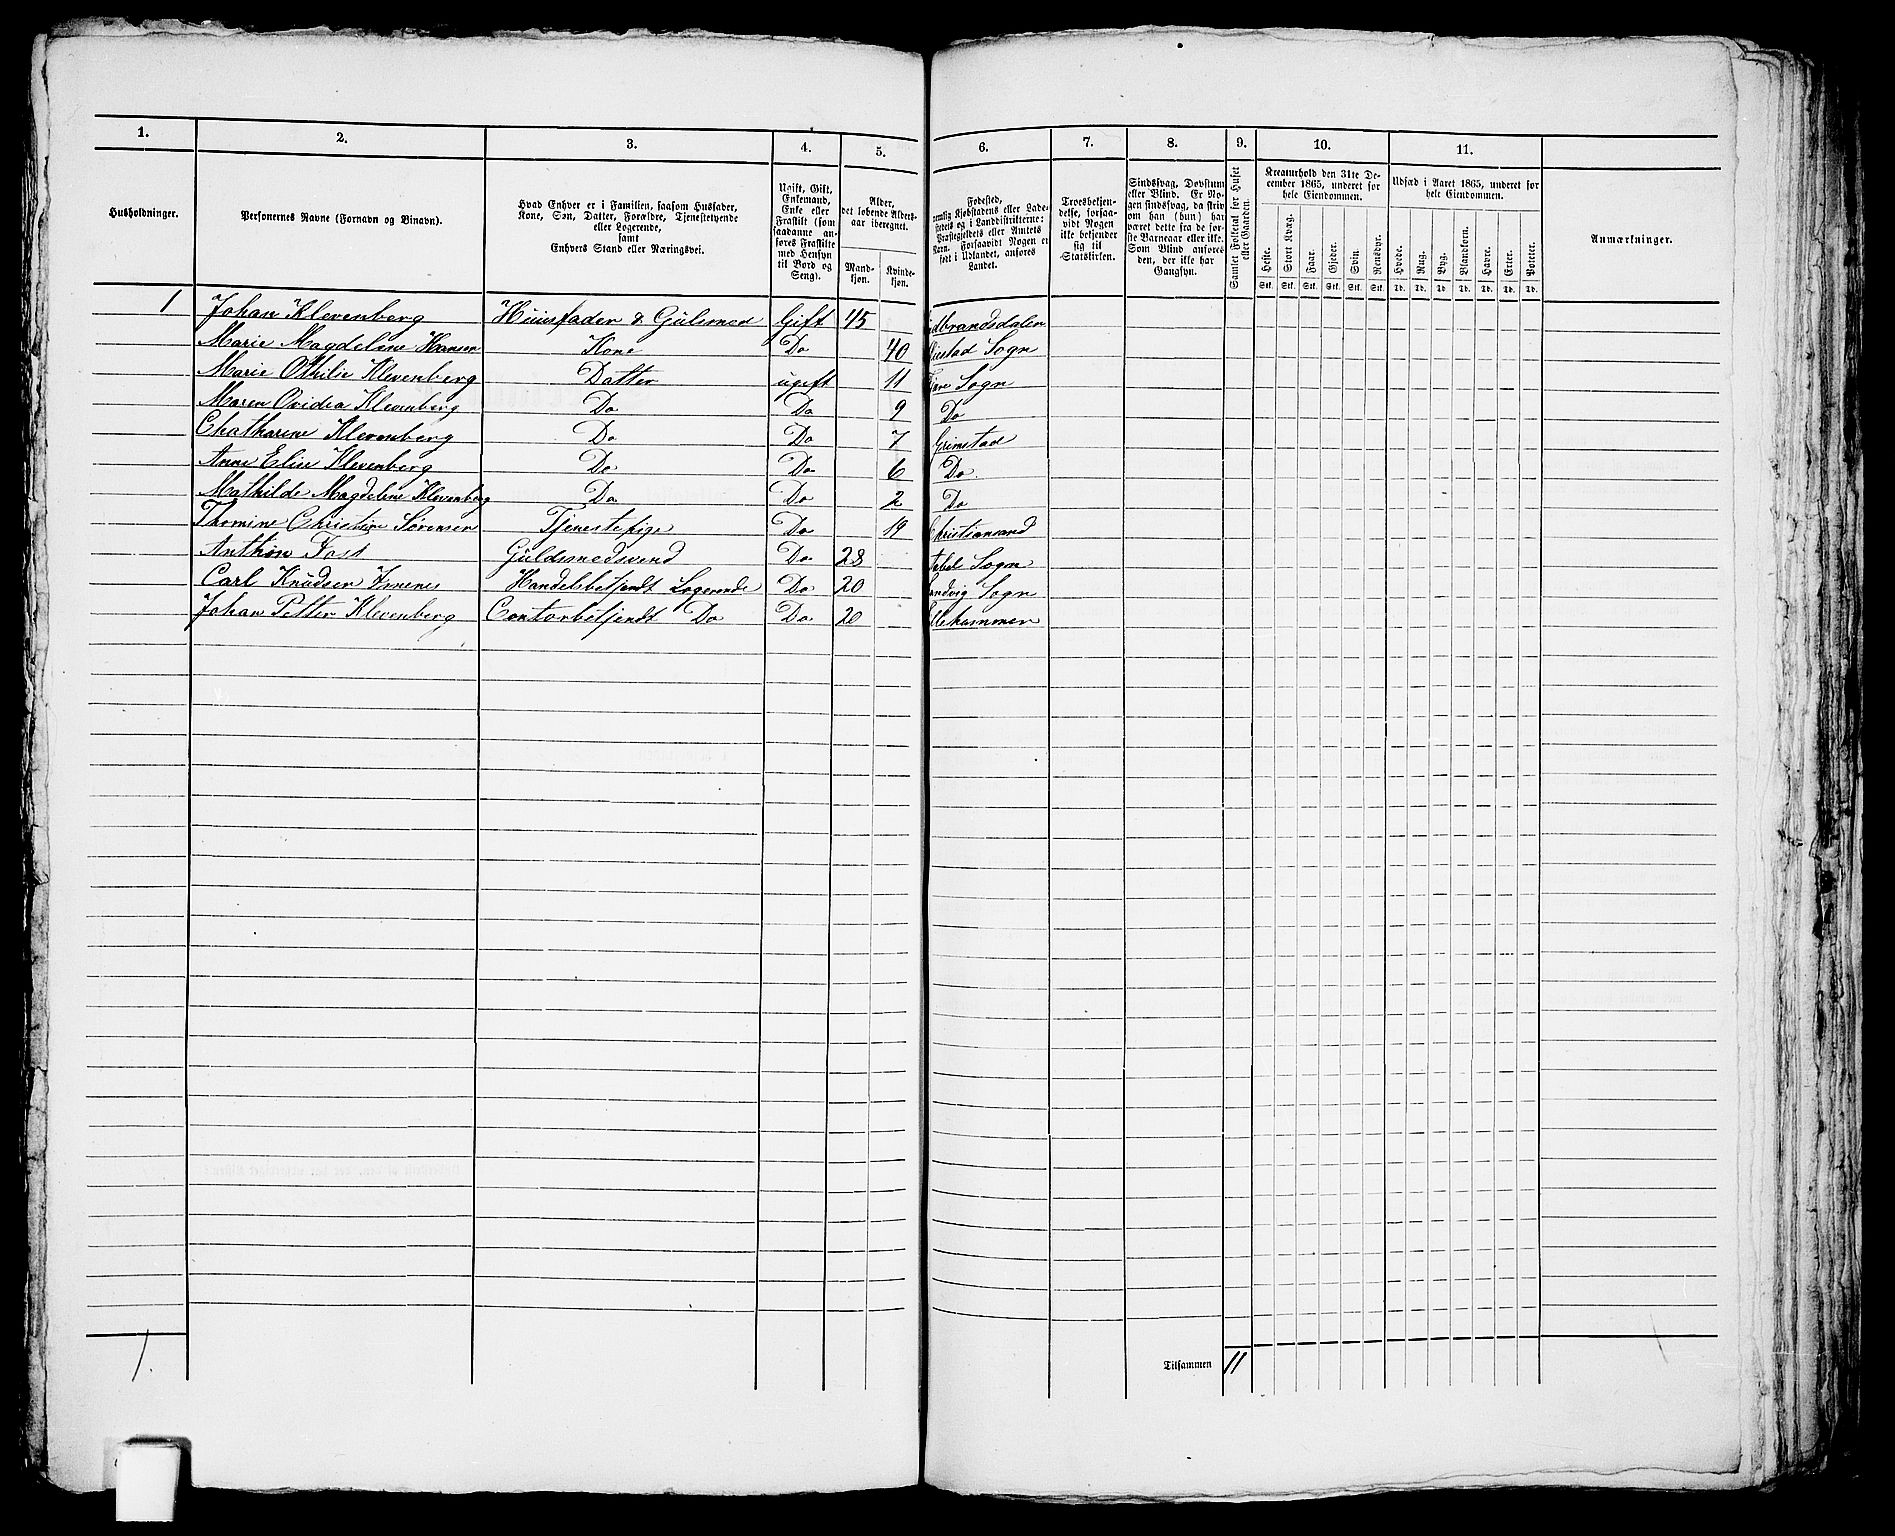 1. 2. 3. 4. 5. 6. 7. 8. 9. 10. 11.
Husholdninger.
Personernes Navne (Fornavn og Binavn).
Hvad Enhver er i Familien, saasom Husfader,
Kone, Søn, Datter, Forældre, Tjenestetyende
eller Logerende,
samt
Enhvers Stand eller Næringsvei.
Ugift, Gift,
Enkemand,
Enke eller
Fraskilt (som
saadanne an-
føres Fraskilte
med Hensyn
til Bord og
Seng).
Alder,
det løbende Alders-
aar iberegnet.
Mand-
kjøn.
Kvinde-
kjøn.
Fødested,
nemlig Kjøbstadens eller Lade-
stedets og i Landdistrikterne:
Præstegjeldets eller Amtets
Navn. Forsaavidt Nogen er
født i Udlandet, anføres
Landet.
Troesbekjen-
delse, forsaa-
vidt Nogen
ikke bekjender
sig til
Statskirken.
Sindssvag, Døvstum
eller Blind. Er No-
gen sindssvag, da skriv
om han (hun) har
været dette fra de før-
ste Barneaar eller ikke.
Som Blind anføres
den, der ikke har
Gangsyn.
Samlet Folketal for Huset
eller Gaarden.
Kreaturhold den 31te De-
cember 1865, underet for
hele Eiendommen.
Heste. Stort Kvæg. Faar. Gjeder. Svin. Rensdyr.
Stk. Stk. Stk. Stk. Stk. Stk.
Udsæd i Aaret 1865, underet for
hele Eiendommen.
Hvede. Rug. Byg. Blandkorn. Havre. Erter. Poteter.
Td. Td. Td. Td. Td. Td. Td.
Anmærkninger.
1 Johan Klevenberg Huusfader & Gulsmed Gift 45 dbrandsdalen
Marie Magdelene Hansen Kone Do 40 Sogn
Marie Othilie Klevenberg Datter ugift 11 Sogn
Maren Ovidea Klevenberg Do Do 9 Do
Chatharine Klevenberg Do Do 7 Grimstad
Anne Elise Klevenberg Do Do 6 Do
Mathilde Magdelene Klevenberg Do Do 2 Do
Thomine Christine Sørensen Tjenestepige Do 19 Christiansand
Anthon Guldsmedsvend Do 28 Sogn
Carl Knudsen Handelsbetjendt Logerende Do 20 andvig Sogn
Johan Petter Klevenberg Contorbetjendt Do Do 20 llehammer
1.
Tilsammen 11